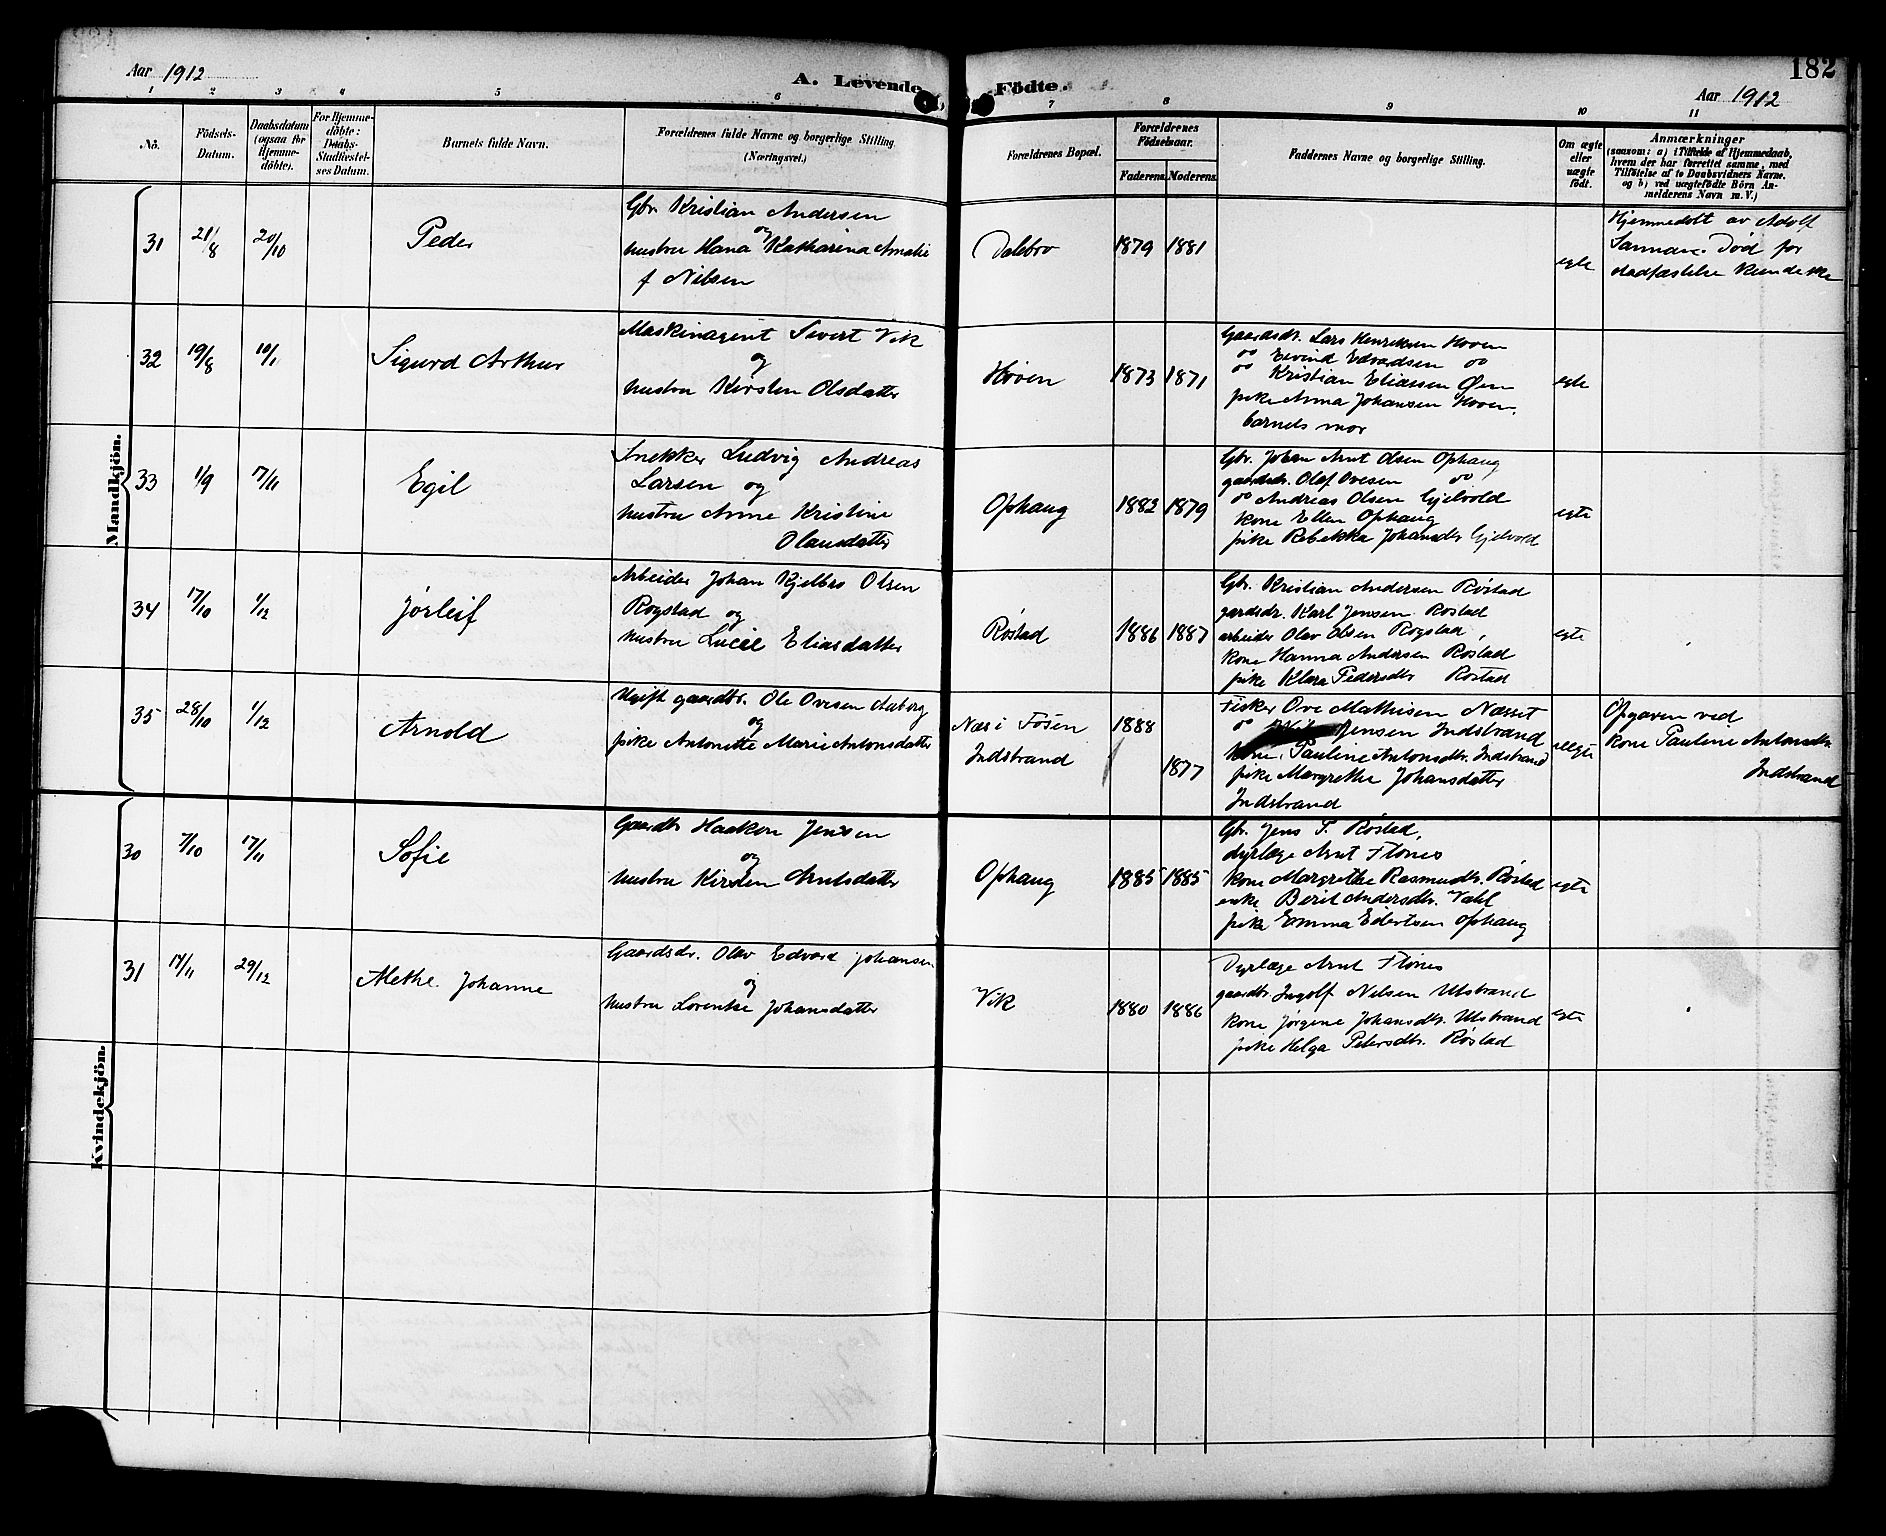 Aar 1912
A. Levende Födte.
182
Aar 1912
1 2 3 4 5 6 7 8 9 10 11
No.
Födsels-
Datum.
Daabsdatum
(ogsaa for
Hjemme-
døbte).
For Hjemme-
døbte:
Daabs-
Stadfæstel-
ses Datum.
Barnets fulde Navn.
Forældrenes fulde Navne og borgerlige Stilling
(Næringsvei.)
Forældrenes Bopæl.
Forældrenes
Födselsaar.
Faderens. Moderens.
Faddernes Navne og borgerlige Stilling.
Om ægte
eller
uægte
födt.
Anmærkninger
(saasom: a) i Tilfælde af Hjemmedaab,
hvem der har forrettet samme, med
Tilföielse af to Daabsvidners Navne.
og b) ved uægtefödte Börn An-
melderens Navn m. V.)
Mandkjön.
31 21/8 20/10 Peder
Gbr. Kristian Andersen
og
hustru Hana Katharina Amalie
f Nilsen
Dalebro 1879 1881
egte
Hjemmedøbt av Adolf
Død før
stadfæstelse kunde ske
32 19/8 Sigurd Arthur
Maskinagent Sivert Vik
og
hustru Kirsten Olsdatter
Hoven 1873 1871
Gaardbr. Lars Henriksen Hoven
oo Eivind Edvardsen oo
oo Kristian Eliassen Øien
pike Anna Johansen Hoven,
barnets mor
egte
33 1/9 17/11 Egil
Snekker Ludvig Andreas
Larsen og
hustru Anne Kristine
Olausdatter
Ophaug 1882 1879
Gbr. Johan Arnt Olsen Ophaug
gaardbr. Olaf Ovesen oo
oo Andreas Olsen Gjelvold
kone Ellen Ophaug
pike Rebekka Johansdtr Gjelvold
egte
34 17/10 1/12 Jørleif
Arbeider Johan Kjelbro Olsen
Rogstad og
hustru Lucie Eliasdatter
Røstad 1886 1887
Gbr. Kristian Andersen Røstad
gardsdr. Karl Jensen Røstad
arbeider Olav Olsen Rogstad,
kone Hanna Andersen Røstad
pike Klara Pedersdtr Røstad
egte
35 28/10 1/12 Arnold
Ugift gaardbr. Ole Ovesen Aaberg
og
pike Antonette Marie Antonsdatter
Næs i Fosen
Indstrand
1888
1877
Fisker Ove Mathisen Næsset
o Jensen Indstrand
kone Pauline Antonsdtr. Indstrand
pike Margrethe Johansdatter
Indstrand
uegte
Opgaven ved
kone Pauline Antonsdtr
Indstrand
Kvindekjön.
30 7/10 17/11 Sofie
Gaardbr Haakon Jensen
og
hustru Kirsten Arntsdatter
Ophaug 1885 1885
Gbr. Jens P. Røstad,
dyrlæge Arnt Flönes
kone Margrethe Rasmusdtr. Røstad
enke Berit Andersdtr. Vahl
pike Emma Edvartsen Ophaug
egte
31 17/11 29/12 Methe Johanne
Gaardsdr. Olav Edvard Johansen
og
hustru Lorentse Johansdatter
Vik 1880 1886
Dyrlæge Arnt Flönes
gaardbr. Ingolf Nilsen Ulstrand
kone Jørgine Johansdtr. Ulstrand
pike Helga Petersdtr. Røstad
egte